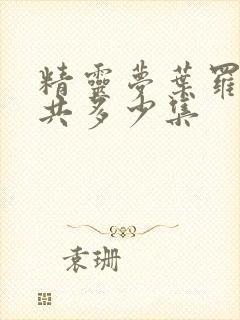 精靈夢葉羅
共多少集
袁珊